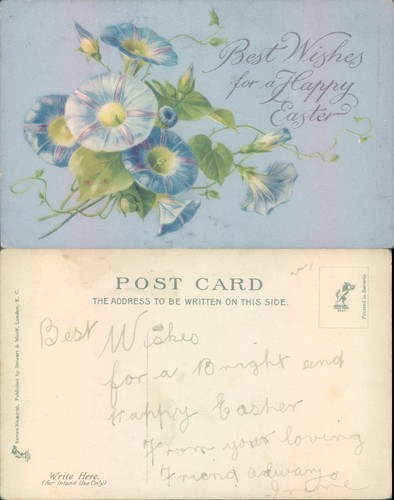 Best Wishes
for a Happy
Easter
POST CARD
THE ADDRESS TO BE WRITTEN ON THIS SIDE.
Printed in Bavaria.
Published by Stewart & Woolf, London, E. C.
Best Wishes
for a Bright and
Happy Easter
From your loving
Friend
Write Here.
(For Inland Use Only)